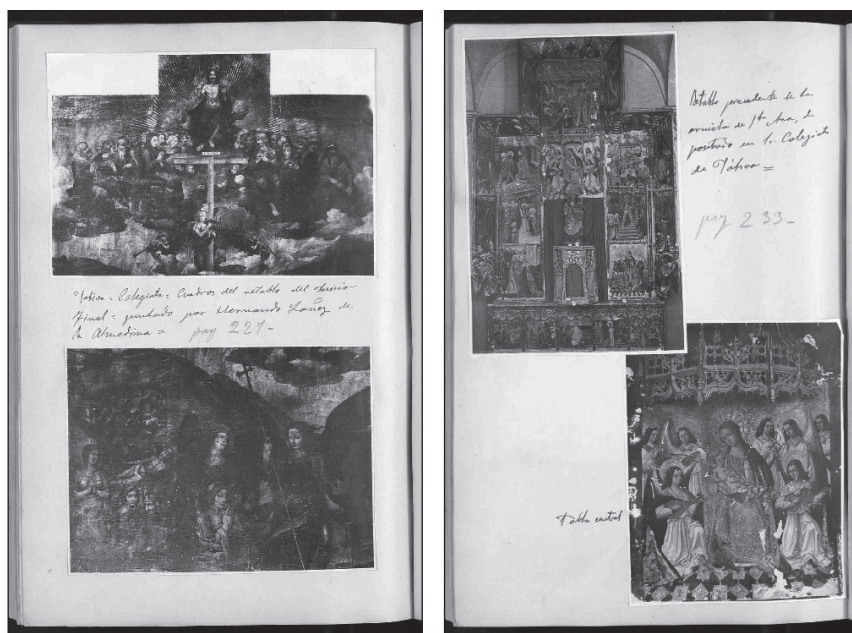 Játiva = Colegiata = Cuadros del retablo del Juicio
Final = pintado por Hernando Yañez de
la Almedina = pag 227-
Retablo procedente de la
ermita de Sta Ana, de
positado en la Colegiata
de Játiva =
pag 233-
Tabla central